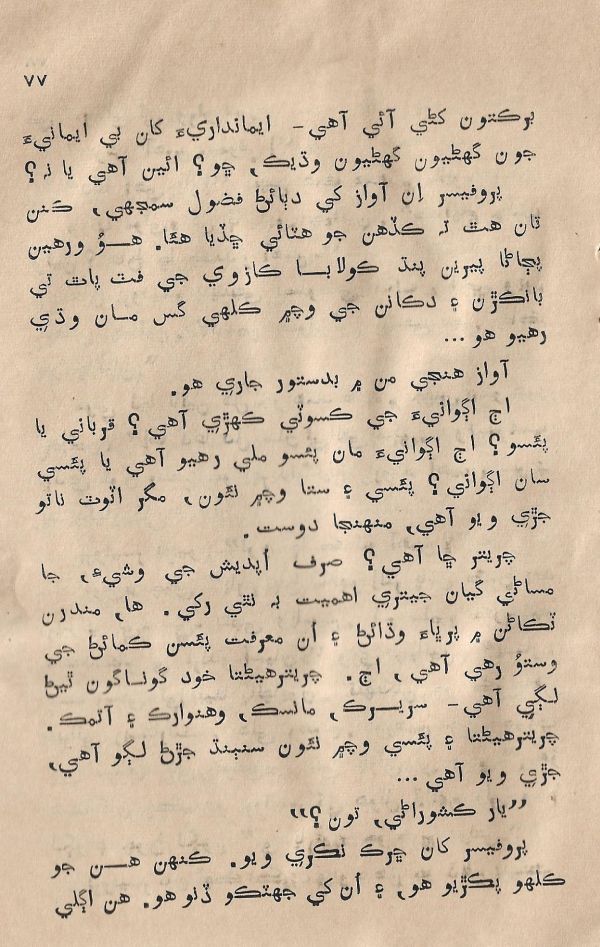 ۷۷
برڪتون کڻي آئي آهي- ايمانداريءَ کان بي ايمانيءَ
جون گهڻيون گهڻيون وڌيڪ، ڇو؟ ائين آهي يا نہ؟
پروفيسر اِن آواز کي دٻائڻ فضول سمجهي، ڪنن
تان هٿ تہ ڪڏهن جو هٽائي ڇڏيا هئا. هو وَرهين
پڄاڻا پيرين پنڌ ڪولابا ڪازوي جي فٽ پاٿ تي
بانڪڙن ۽ دڪانن جي وچ۾ ڪلهي گس مان وڌي
رهيو هو...
آواز هنجي من ۾ بدستور جاري هو.
اڄ اڳوانيءَ جي ڪسوٽي ڪهڙي آهي؟ قرباني يا
پئسو؟ اڄ اڳوانيءَ مان پئسو ملي رهيو آهي يا پئسي
سان اڳواني؟ پئسي ۽ ستا وچ۾ نئون، مگر اٽوٽ ناتو
جڙي ويو آهي، منهنجا دوست.
چرتر ڇا آهي؟ صرف اُپديش جي وشيءِ، جا
مساڻي گيان جيتري اهميت بہ نٿي رکي. ها، مندرن
ٽڪاڻن ۾ پرڀاءُ وڌائڻ ۽ اُن معرفت پئسن ڪمائڻ جي
وستوُ رهي آهي، اڄ. چرترهيڻتا خود گوناگون ٿيڻ
لڳي آهي- سريرڪ، مانسڪ، وهنوارڪ ۽ آتمڪ.
چرترهيڻتا ۽ پئسي وچ۾ نئون سنٻنڌ جڙڻ لڳو آهي،
جڙي ويو آهي...
”يار ڪشوراڻي، تون؟“
پروفيسر کان ڇرڪ نڪري ويو. ڪنهن هن جو
ڪلهو پڪڙيو هو، ۽ اُن کي جهٽڪو ڏنو هو. هن اڳلي